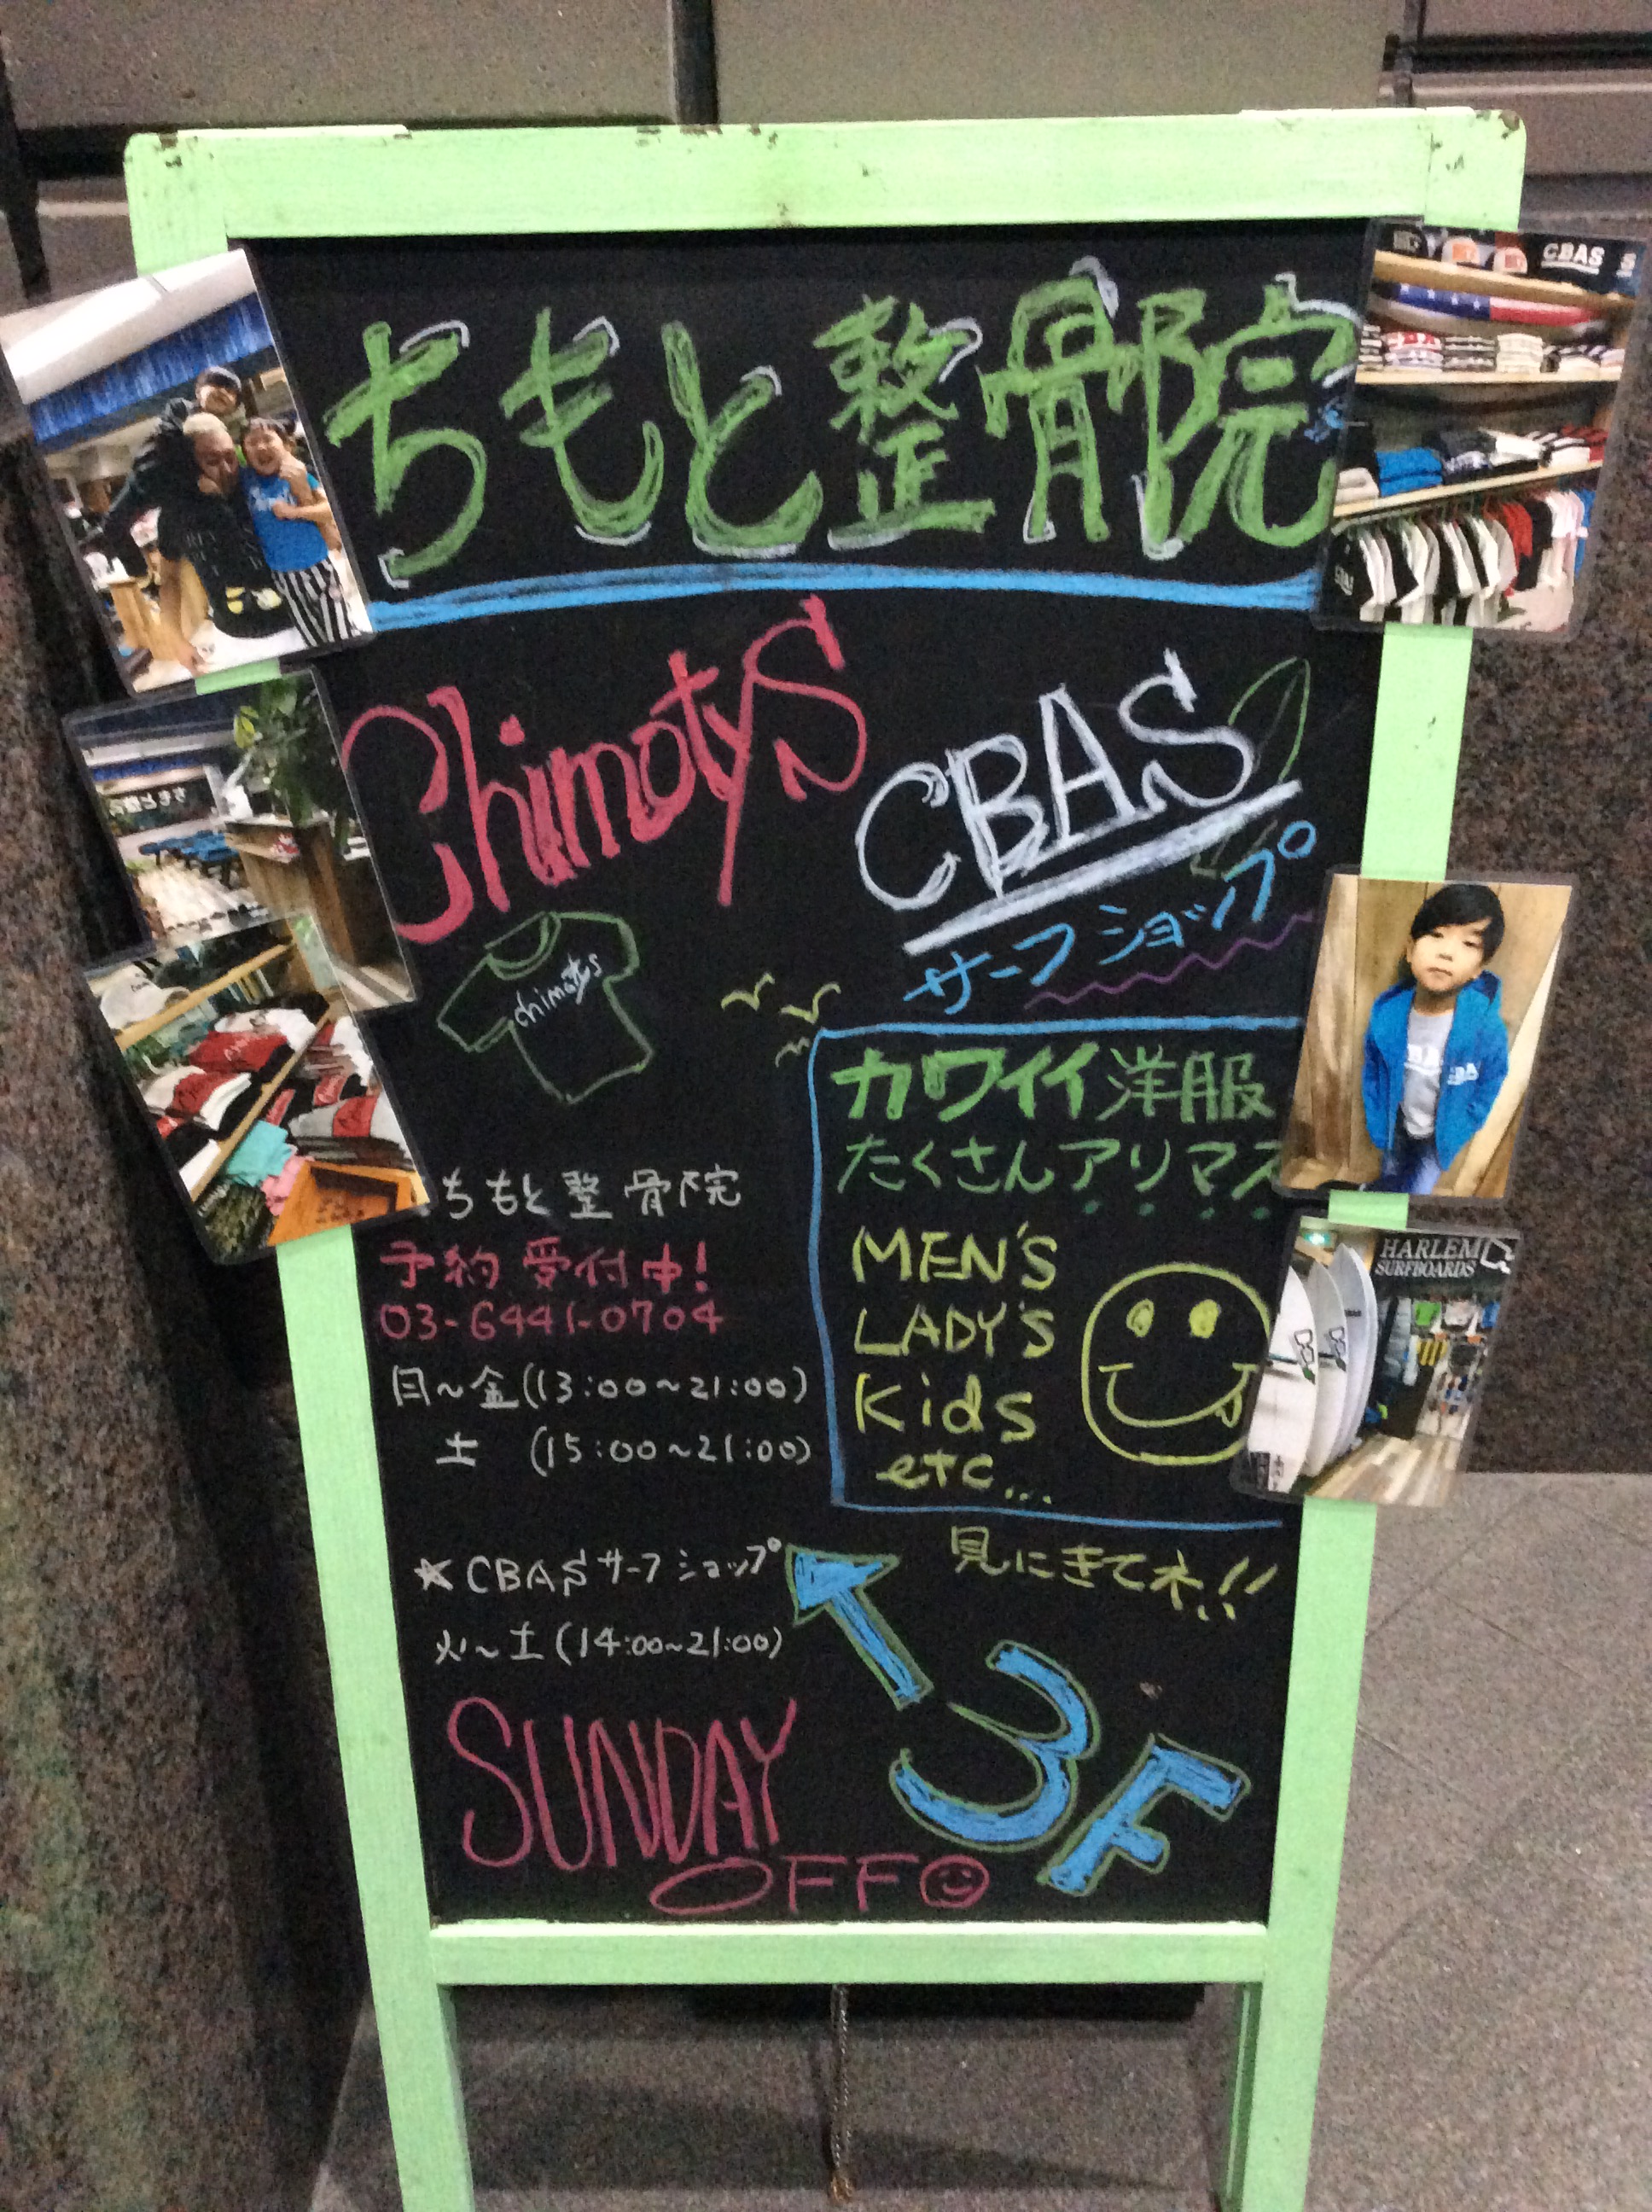 ちもと整骨院
Chimotys
CBAS
サーフショップ
chimotys
カワイイ洋服
たくさんアリマス
MEN'S
LADY'S
Kids
etc...
見にきてネ!!
ちもと整骨院
予約受付中!
03-6441-0704
月~金(13:00~21:00)
土 (15:00~21:00)
★CBASサーフショップ
火~土(14:00~21:00)
3F
SUNDAY
OFF
CBAS
HARLEM
SURFBOARDS